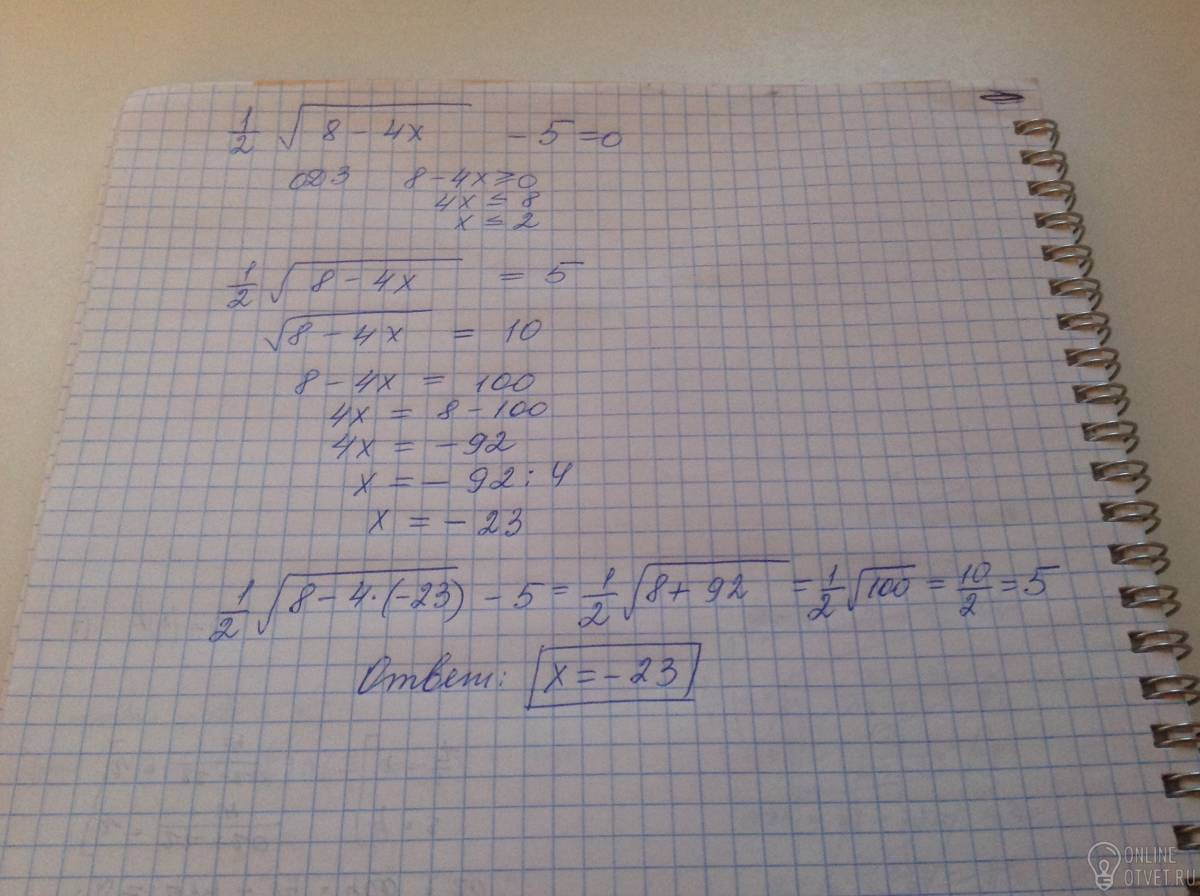 1/2 √(8 - 4x) - 5 = 0
ОДЗ 8 - 4x ≥ 0
4x ≤ 8
x ≤ 2
1/2 √(8 - 4x) = 5
√(8 - 4x) = 10
8 - 4x = 100
4x = 8 - 100
4x = - 92
x = - 92 : 4
x = - 23
1/2 √(8 - 4·(-23)) - 5 = 1/2 √(8 + 92) = 1/2 √100 = 10/2 = 5
Ответ: x = - 23
ONLINE
OTVET.RU